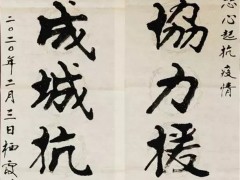 心起抗疫情
協力援
成城抗
二〇二〇年二月三日栖霞